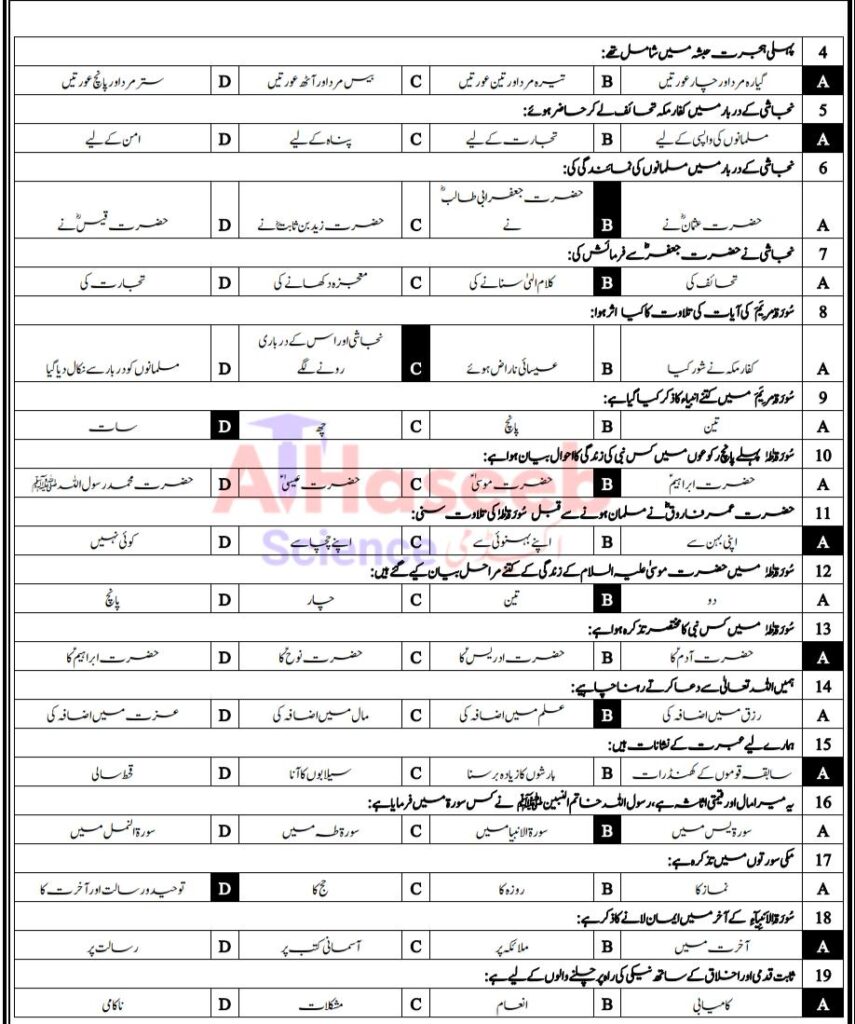 4 پہلی ہجرت حبشہ میں شامل تھے:
A گیارہ مرد اور چار عورتیں B تیرہ مرد اور تین عورتیں C بیس مرد اور آٹھ عورتیں D ستر مرد اور پانچ عورتیں
5 نجاشی کے دربار میں کفار مکہ تحائف لے کر حاضر ہوئے:
A مسلمانوں کی واپسی کے لیے B تجارت کے لیے C پناہ کے لیے D امن کے لیے
6 نجاشی کے دربار میں مسلمانوں کی نمائندگی کی:
A حضرت عثمانؓ نے B حضرت جعفر ابی طالبؓ نے C حضرت زید بن ثابتؓ نے D حضرت قیسؓ نے
7 نجاشی نے حضرت جعفرؓ سے فرمائش کی:
A تحائف کی B کلام الٰہی سنانے کی C معجزہ دکھانے کی D تجارت کی
8 سُورَۃُ مَرْیَمَ کی آیات کی تلاوت کا کیا اثر ہوا:
A کفار مکہ نے شور کیا B عیسائی ناراض ہوئے C نجاشی اور اس کے درباری رونے لگے D مسلمانوں کو دربار سے نکال دیا گیا
9 سُورَۃُ مَرْیَمَ میں کتنے انبیاء کا ذکر کیا گیا ہے:
A تین B پانچ C چھ D سات
10 سُورَۃُ طٰہٰ پہلے پانچ رکوعوں میں کس نبی کی زندگی کا احوال بیان ہوا ہے:
A حضرت ابراہیمؑ B حضرت موسیٰؑ C حضرت عیسیٰؑ D حضرت محمد رسول اللہ ﷺ
11 حضرت عمر فاروقؓ نے مسلمان ہونے سے قبل سُورَۃُ طٰہٰ کی تلاوت سنی:
A اپنی بہن سے B اپنے بہنوئی سے C اپنے چچا سے D کوئی نہیں
12 سُورَۃُ طٰہٰ میں حضرت موسیٰ علیہ السلام کے زندگی کے کتنے مراحل بیان کیے گئے ہیں:
A دو B تین C چار D پانچ
13 سُورَۃُ طٰہٰ میں کس نبی کا مختصر تذکرہ ہوا ہے:
A حضرت آدمؑ کا B حضرت ادریسؑ کا C حضرت نوحؑ کا D حضرت ابراہیمؑ کا
14 ہمیں اللہ تعالیٰ سے دعا کرتے رہنا چاہیے:
A رزق میں اضافہ کی B علم میں اضافہ کی C مال میں اضافہ کی D عزت میں اضافہ کی
15 ہمارے لیے عبرت کے نشانات ہیں:
A سابقہ قوموں کے کھنڈرات B بارشوں کا زیادہ برسنا C سیلابوں کا آنا D قحط سالی
16 یہ میرا مال اور قیمتی اثاثہ ہے، رسول اللہ خاتم النبیین ﷺ نے کس سورۃ میں فرمایا ہے:
A سورۃ یس میں B سورۃ الانبیا میں C سورۃ طہ میں D سورۃ النمل میں
17 مکی سورتوں میں تذکرہ ہے:
A نماز کا B روزہ کا C حج کا D توحید و رسالت اور آخرت کا
18 سُورَۃُ الْاَنْبِیَآءِ کے آخر میں ایمان لانے کا ذکر ہے:
A آخرت میں B ملائکہ پر C آسمانی کتب پر D رسالت پر
19 ثابت قدمی اور اخلاق کے ساتھ نیکی کی راہ پر چلنے والوں کے لیے ہے:
A کامیابی B انعام C مشکلات D ناکامی
AlHaseeb
Science اکیڈمی